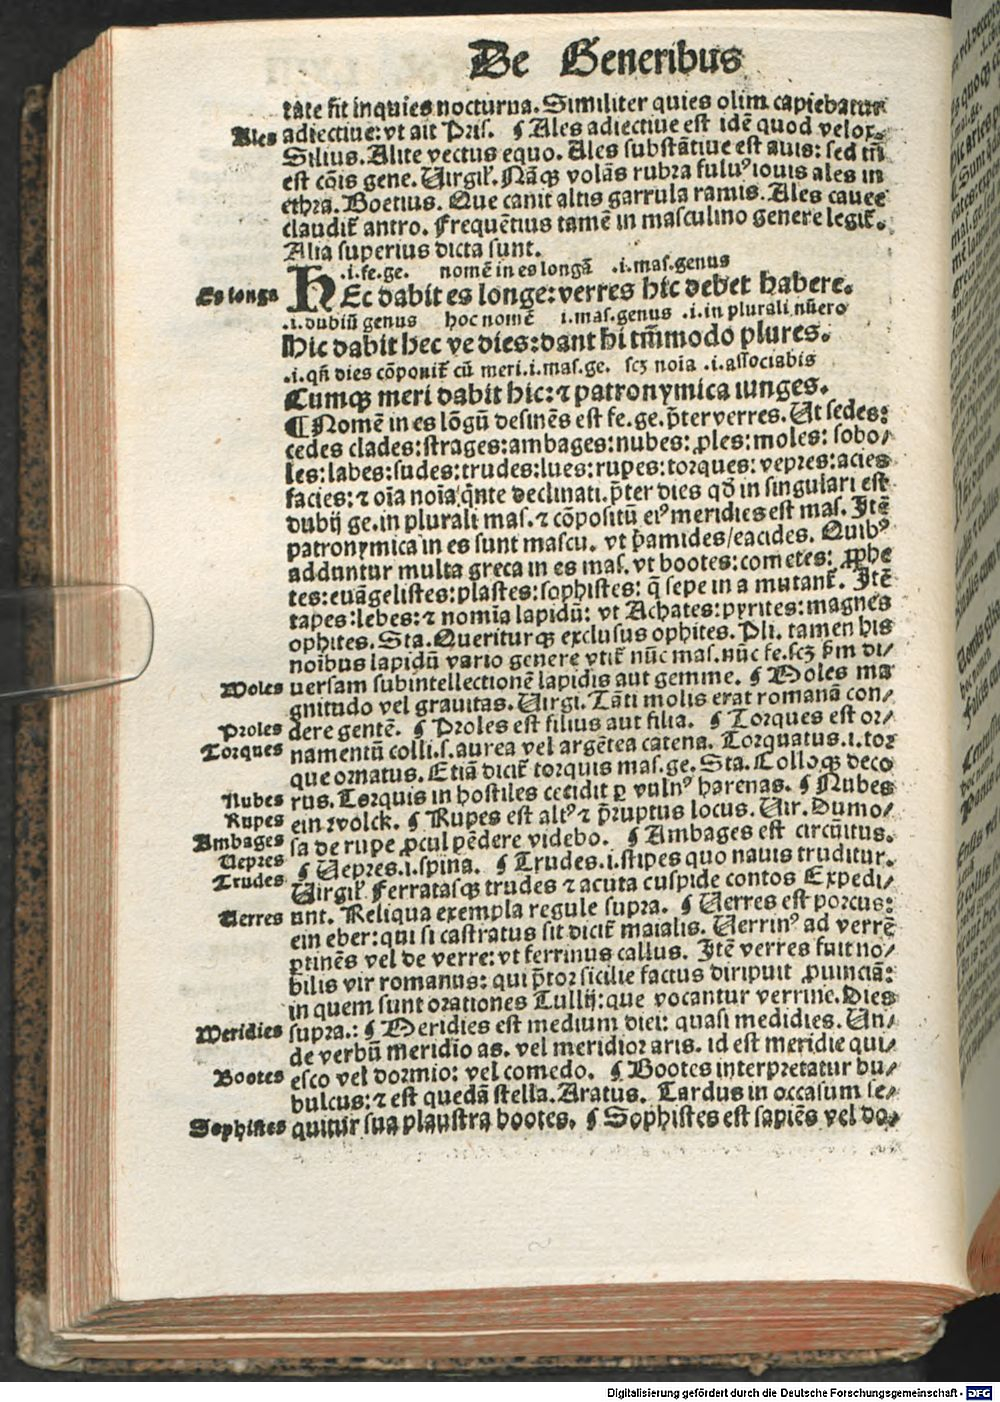 De Generibus
tate fit inquies nocturna. Similiter quies olim capiebatur
Ales adiectiue: vt ait Pris. ¶ Ales adiectiue est idē quod velox.
Silius. Alite vectus equo. Ales substātiue est auis: sed tm̄
est cōis gene. Virgil'. Nāqꝫ volās rubra fuluꝰ iouis ales in
ethra. Boetius. Que canit altis garrula ramis. Ales cauee
claudit᷑ antro. Frequētius tamē in masculino genere legit᷑.
Alia superius dicta sunt.
.i.fe.ge. nomē in es longā .i.mas.genus
Es longa HEc dabit es longe: verres hic debet habere.
.i.dubiū genus hoc nomē i.mas.genus .i.in plurali nūero
Hic dabit hec ve dies: dant hi tm̄modo plures.
.i.qn̄ dies cōponit᷑ cū meri.i.mas.ge. scꝫ noīa .i.associabis
Cumqꝫ meri dabit hic: ⁊ patronymica iunges.
¶ Nomē in es lōgū desinēs est fe.ge. p̄ter verres. Vt sedes:
cedes clades: strages: ambages: nubes: ꝓles: moles: sobo/
les: labes: sudes: trudes: lues: rupes: torques: vepres: acies
facies: ⁊ oīa noīa q̄nte declinati. p̄ter dies qd̄ in singulari est
dubij ge. in plurali mas. ⁊ cōpositū eiꝰ meridies est mas. Itē
patronymica in es sunt mascu. vt p̄amides/eacides. Quibꝰ
adduntur multa greca in es mas. vt bootes: cometes: ꝓphe
tes: euāgelistes: plastes: sophistes: q̄ sepe in a mutant᷑. Itē
tapes: lebes: ⁊ nomīa lapidū: vt Achates: pyrites: magnes
ophites. Sta. Queriturqꝫ exclusus ophites. Pli. tamen his
noībus lapidū vario genere vtit᷑ nūc mas. nūc fe. scꝫ ẜm di/
Moles uersam subintellectionē lapidis aut gemme. ¶ Moles ma
gnitudo vel grauitas. Virgi. Tāti molis erat romanā con/
Proles dere gentē. ¶ Proles est filius aut filia. ¶ Torques est or/
Torques namentū colli.s. aurea vel argētea catena. Torquatus.i.tor
que ornatus. Etiā dicit᷑ torquis mas.ge. Sta. Colloqꝫ deco
Nubes rus. Torquis in hostiles cecidit ꝑ vulnꝰ harenas. ¶ Nubes
Rupes ein wolck. ¶ Rupes est altꝰ ⁊ p̄ruptus locus. Vir. Dumo/
Ambages sa de rupe ꝓcul pēdere videbo. ¶ Ambages est circūitus.
Vepres ¶ Vepres.i.spina. ¶ Trudes.i.stipes quo nauis truditur.
Trudes Virgil'. Ferratasqꝫ trudes ⁊ acuta cuspide contos Expedi/
Verres unt. Reliqua exempla regule supra. ¶ Verres est porcus:
ein eber: qui si castratus sit dicit᷑ maialis. Verrinꝰ ad verrē
ꝑtinēs vel de verre: vt ferrinus callus. Itē verres fuit no/
bilis vir romanus: qui p̄tor sicilie factus diripuit ꝓuinciā:
in quem sunt orationes Tullij: que vocantur verrine. Dies
Meridies supra.: ¶ Meridies est medium diei: quasi medidies. Vn/
de verbū meridio as. vel meridior aris. id est meridie qui/
Bootes esco vel dormio: vel comedo. ¶ Bootes interpretatur bu/
bulcus: ⁊ est quedā stella. Aratus. Tardus in occasum se/
Sophistes quitur sua plaustra bootes. ¶ Sophistes est sapiēs vel do/
Digitalisierung gefördert durch die Deutsche Forschungsgemeinschaft - DFG